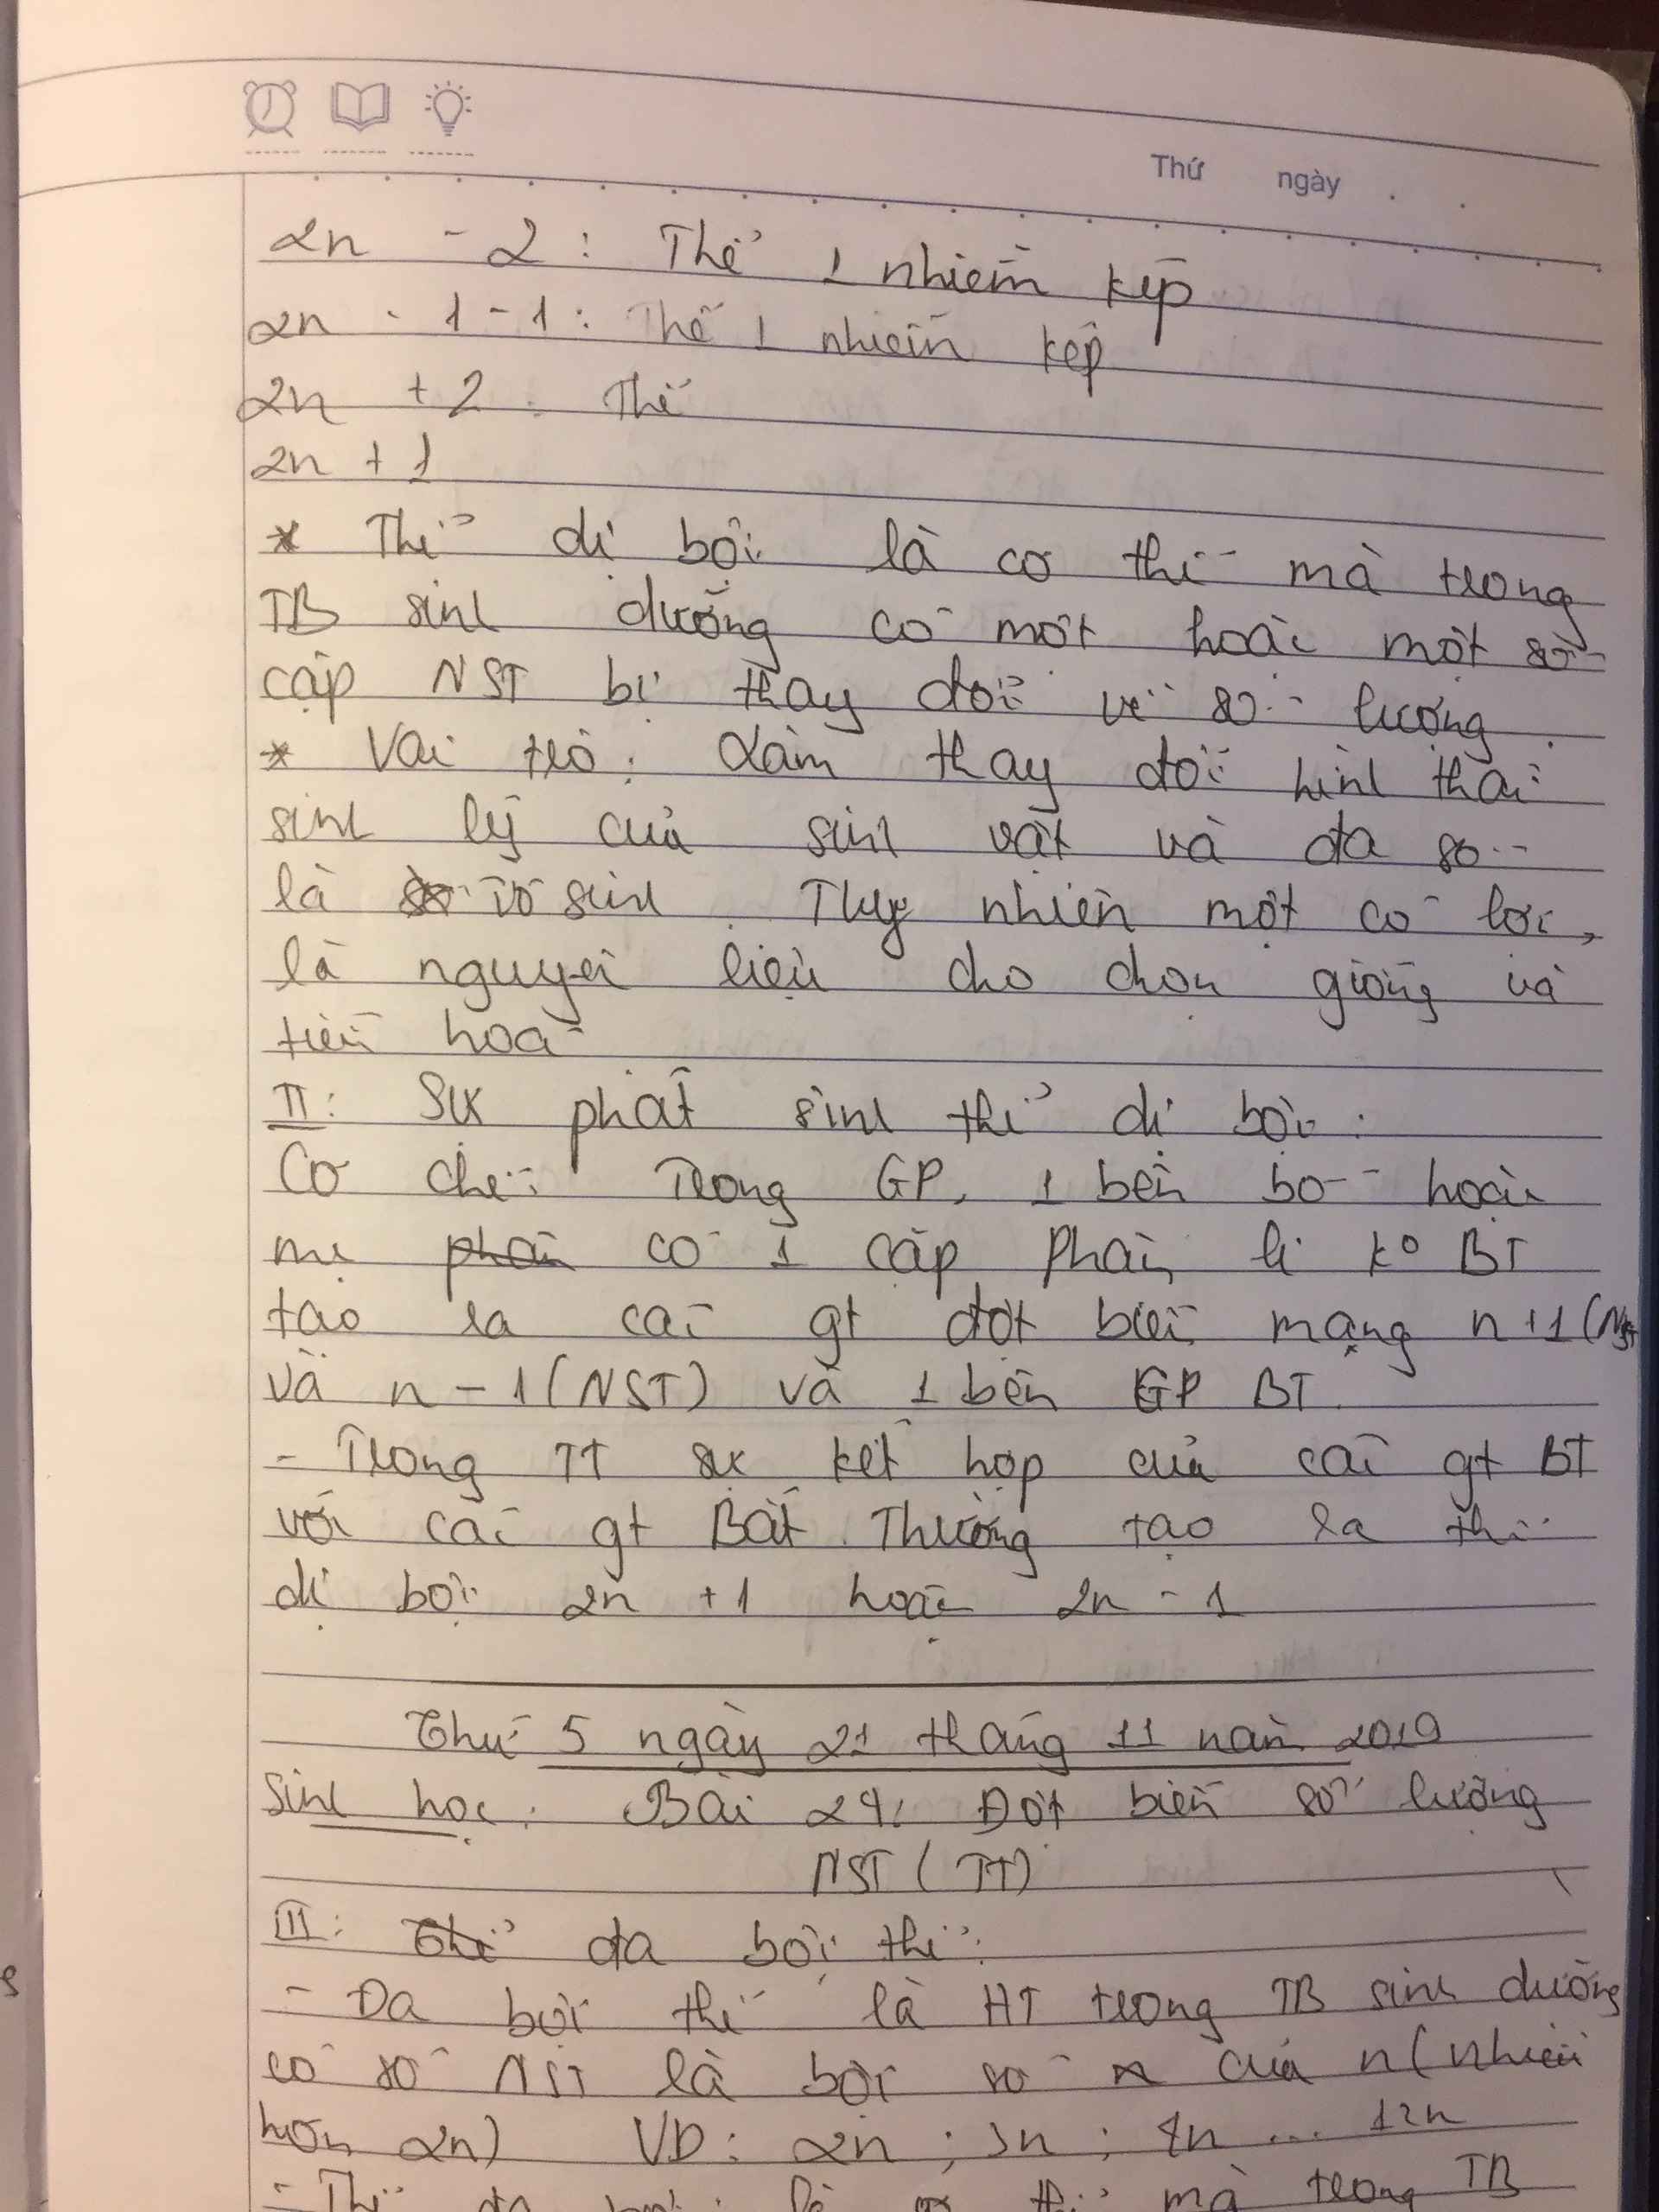 Thứ ngày
2n - 2 : Thể 1 nhiễm kép
2n - 1 - 1 : Thể 1 nhiễm kép
2n + 2 : Thể
2n + 1
* Thể dị bội là cơ thể mà trong
TB sinh dưỡng có một hoặc một số
cặp NST bị thay đổi về số lượng.
* Vai trò : Làm thay đổi hình thái
sinh lý của sinh vật và đa số
là vô sinh. Tuy nhiên một có lợi,
là nguyên liệu cho chọn giống và
tiến hoá
II: Sự phát sinh thể dị bội :
Cơ chế: Trong GP, 1 bên bố hoặc
mẹ phân có 1 cặp phân li ko BT
tạo ra các gt đột biến mang n+1 (NST
và n - 1 (NST) và 1 bên GP BT.
- Trong TT sự kết hợp của các gt BT
với các gt Bất Thường tạo ra thể
dị bội 2n + 1 hoặc 2n - 1
Thứ 5 ngày 21 tháng 11 năm 2019
Sinh học : Bài 24: Đột biến số lượng
NST (TT)
III: Thể đa bội thể :
- Đa bội thể là HT trong TB sinh dưỡng
có số NST là bội số n của n (nhiều
hơn 2n) VD : 2n ; 3n ; 4n ... 12n
- Thể đa bội là cơ thể mà trong TB